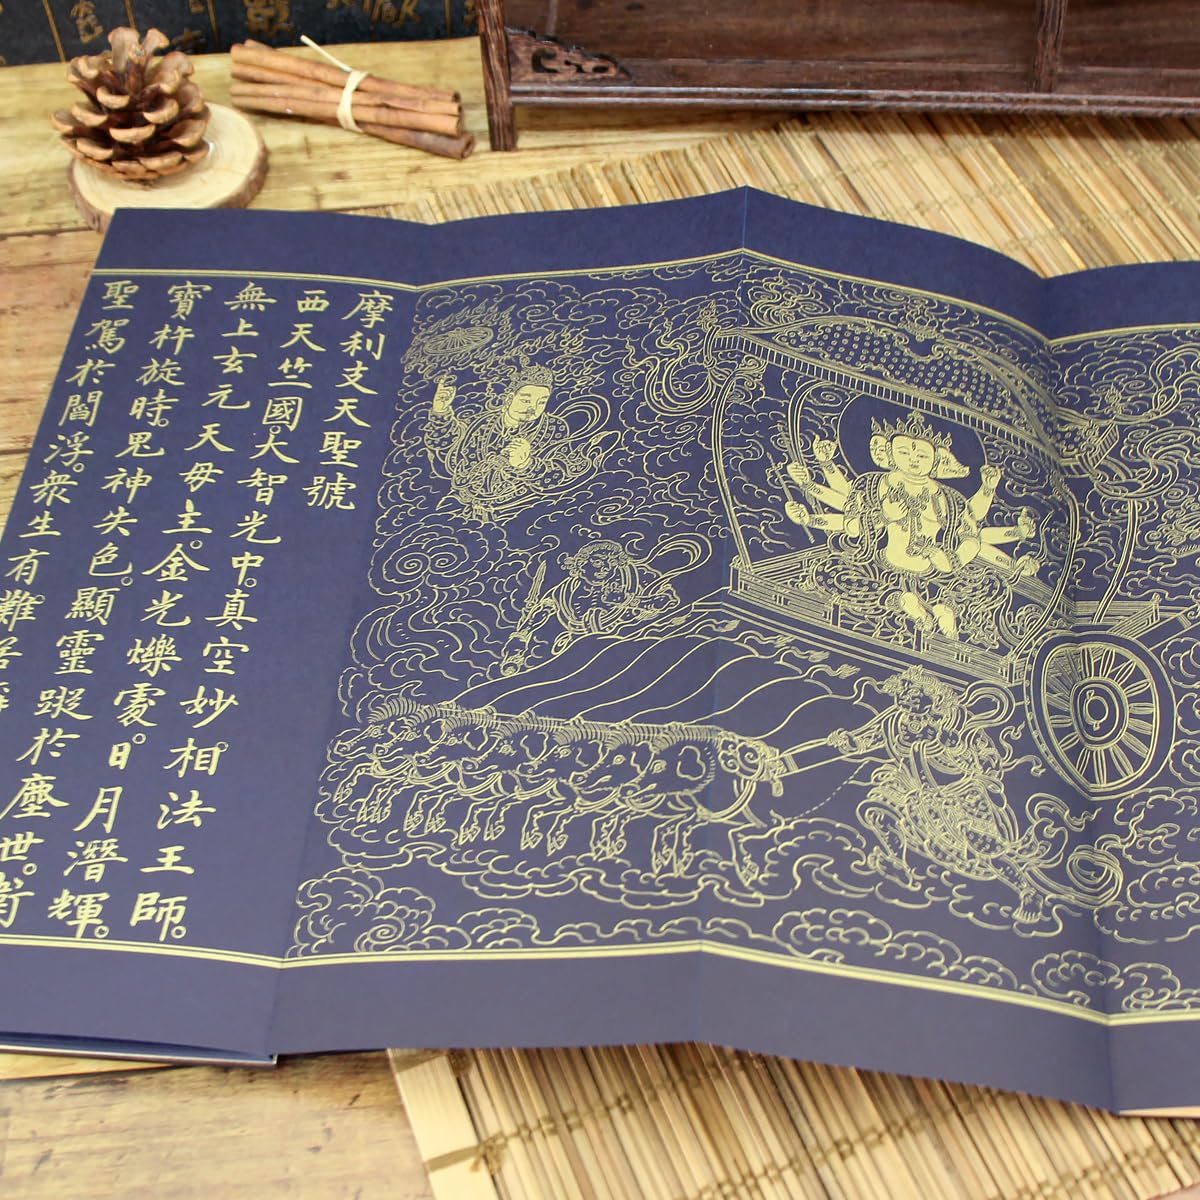 摩利支天聖號
西天竺國。大智光中。真空妙相法王師。
無上玄元天毋主。金光爍處。日月潛輝。
寶杵旋時。鬼神失色。顯靈蹤於塵世。
聖駕於閻浮。衆生有難